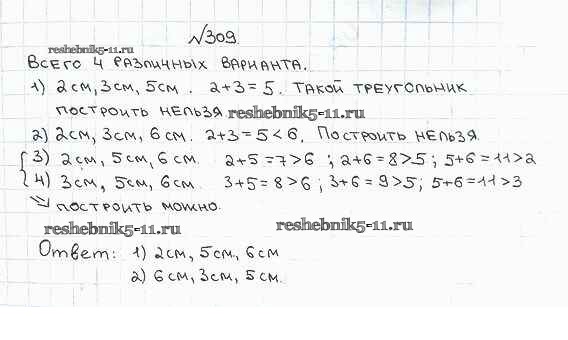 №309.
reshebnik5-11.ru
Всего 4 различных варианта.
1) 2см, 3см, 5см. 2+3=5. Такой треугольник
построить нельзя reshebnik5-11.ru
2) 2см, 3см, 6см. 2+3=5<6. Построить нельзя.
3) 2см, 5см, 6см. 2+5=7>6 ; 2+6=8>5 ; 5+6=11>2
4) 3см, 5см, 6см. 3+5=8>6 ; 3+6=9>5 ; 5+6=11>3
⇒ построить можно.
reshebnik5-11.ru reshebnik5-11.ru
Ответ: 1) 2см, 5см, 6см
2) 6см, 3см, 5см.